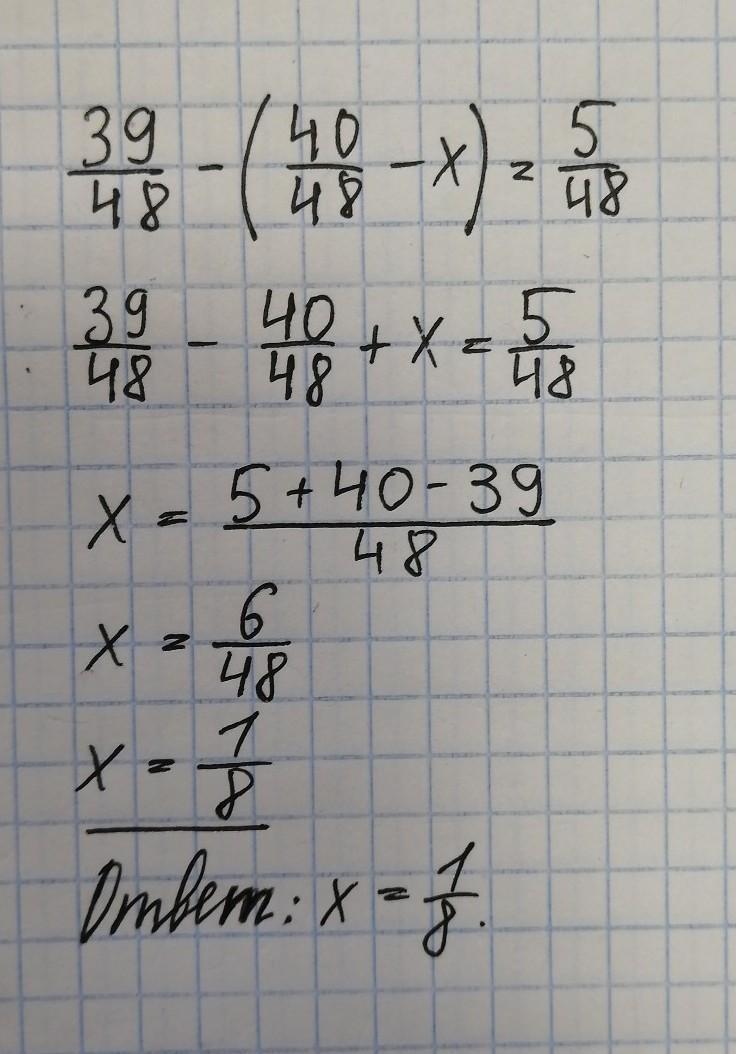 39/48 - (40/48 - x) = 5/48
39/48 - 40/48 + x = 5/48
x = (5 + 40 - 39)/48
x = 6/48
x = 1/8
Ответ: x = 1/8.